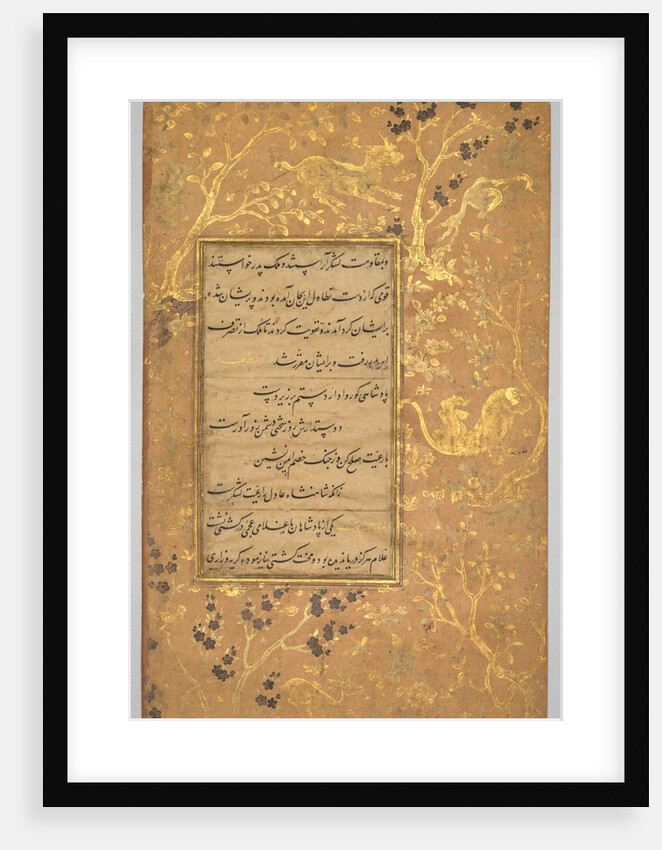 و بمقاومت لشکر آراستند و ملک پدر خواستند
قومی که از دست تطاول این بجان آمده بودند و پریشان شده
بر ایشان گرد آمدند و تقویت کردند تا ملک از تصرف
بدر رفت و بر ایشان مقرر شد
پادشاهی کو روا دارد ستم بر زیردست
دوستدارش روز سختی دشمن زورآورست
با رعیت صلح کن وز جنگ خصم ایمن نشین
زانکه شاهنشاه عادل را رعیت لشکرست
یکی از پادشاهان با غلامی عجمی در کشتی نشست
غلام هرگز دریا ندیده بود و محنت کشتی نیازموده گریه و زاری